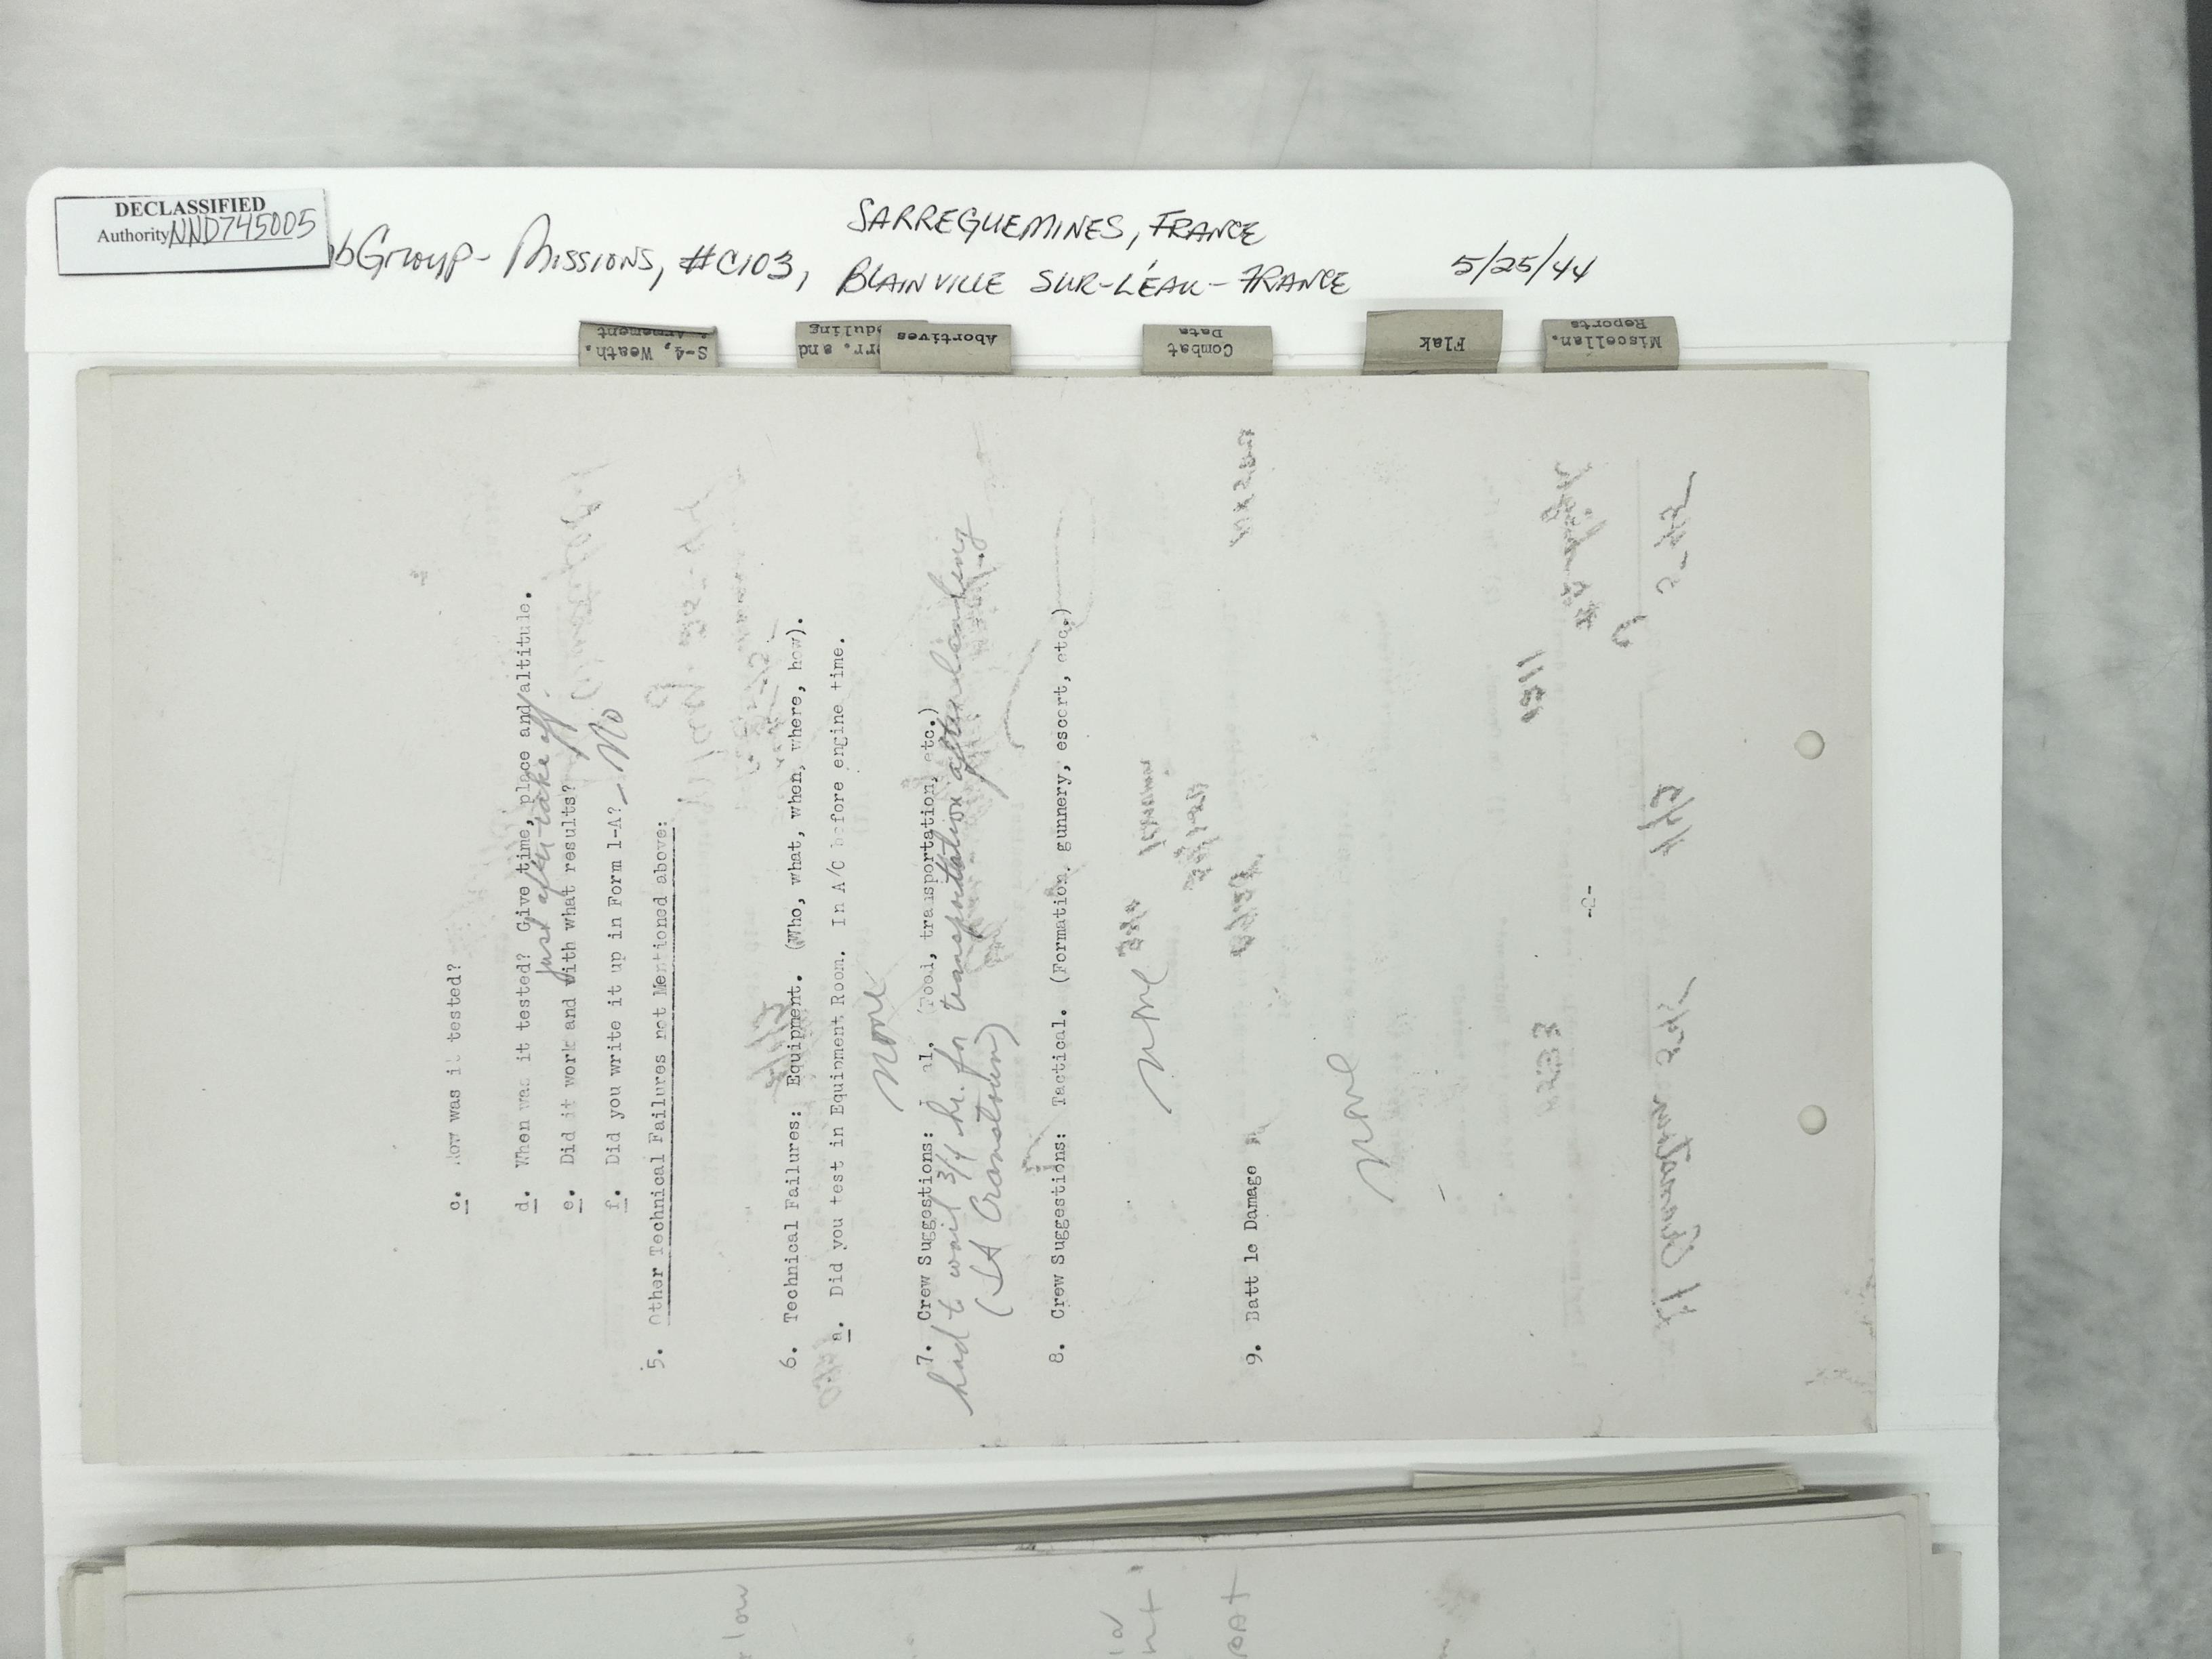 DECLASSIFIED
Authority NND745005
bGroup- Missions, #C103,
SARREGUEMINES, FRANCE
BLAINVILLE SUR-L'EAU-FRANCE
5/25/44
S-4, Weath.
Armement
rr. and
duling
Abortives
Combat
Data
Flak
Miscellan.
Reports
c. How was it tested?
d. When was it tested? Give time, place and altitude.
just after take off.
e. Did it work and with what results?
f. Did you write it up in Form 1-A? No
5. Other Technical Failures not Mentioned above:
6. Technical Failures: Equipment. (Who, what, when, where, how).
a. Did you test in Equipment Room. In A/C before engine time.
None
7. Crew Suggestions: (Food, transportation, etc.)
had to wait 3/4 hr. for transportation after landing
(Lt Cranstoun)
8. Crew Suggestions: Tactical. (Formation, gunnery, escort, etc.)
None
9. Batt le Damage
None
-2-
low